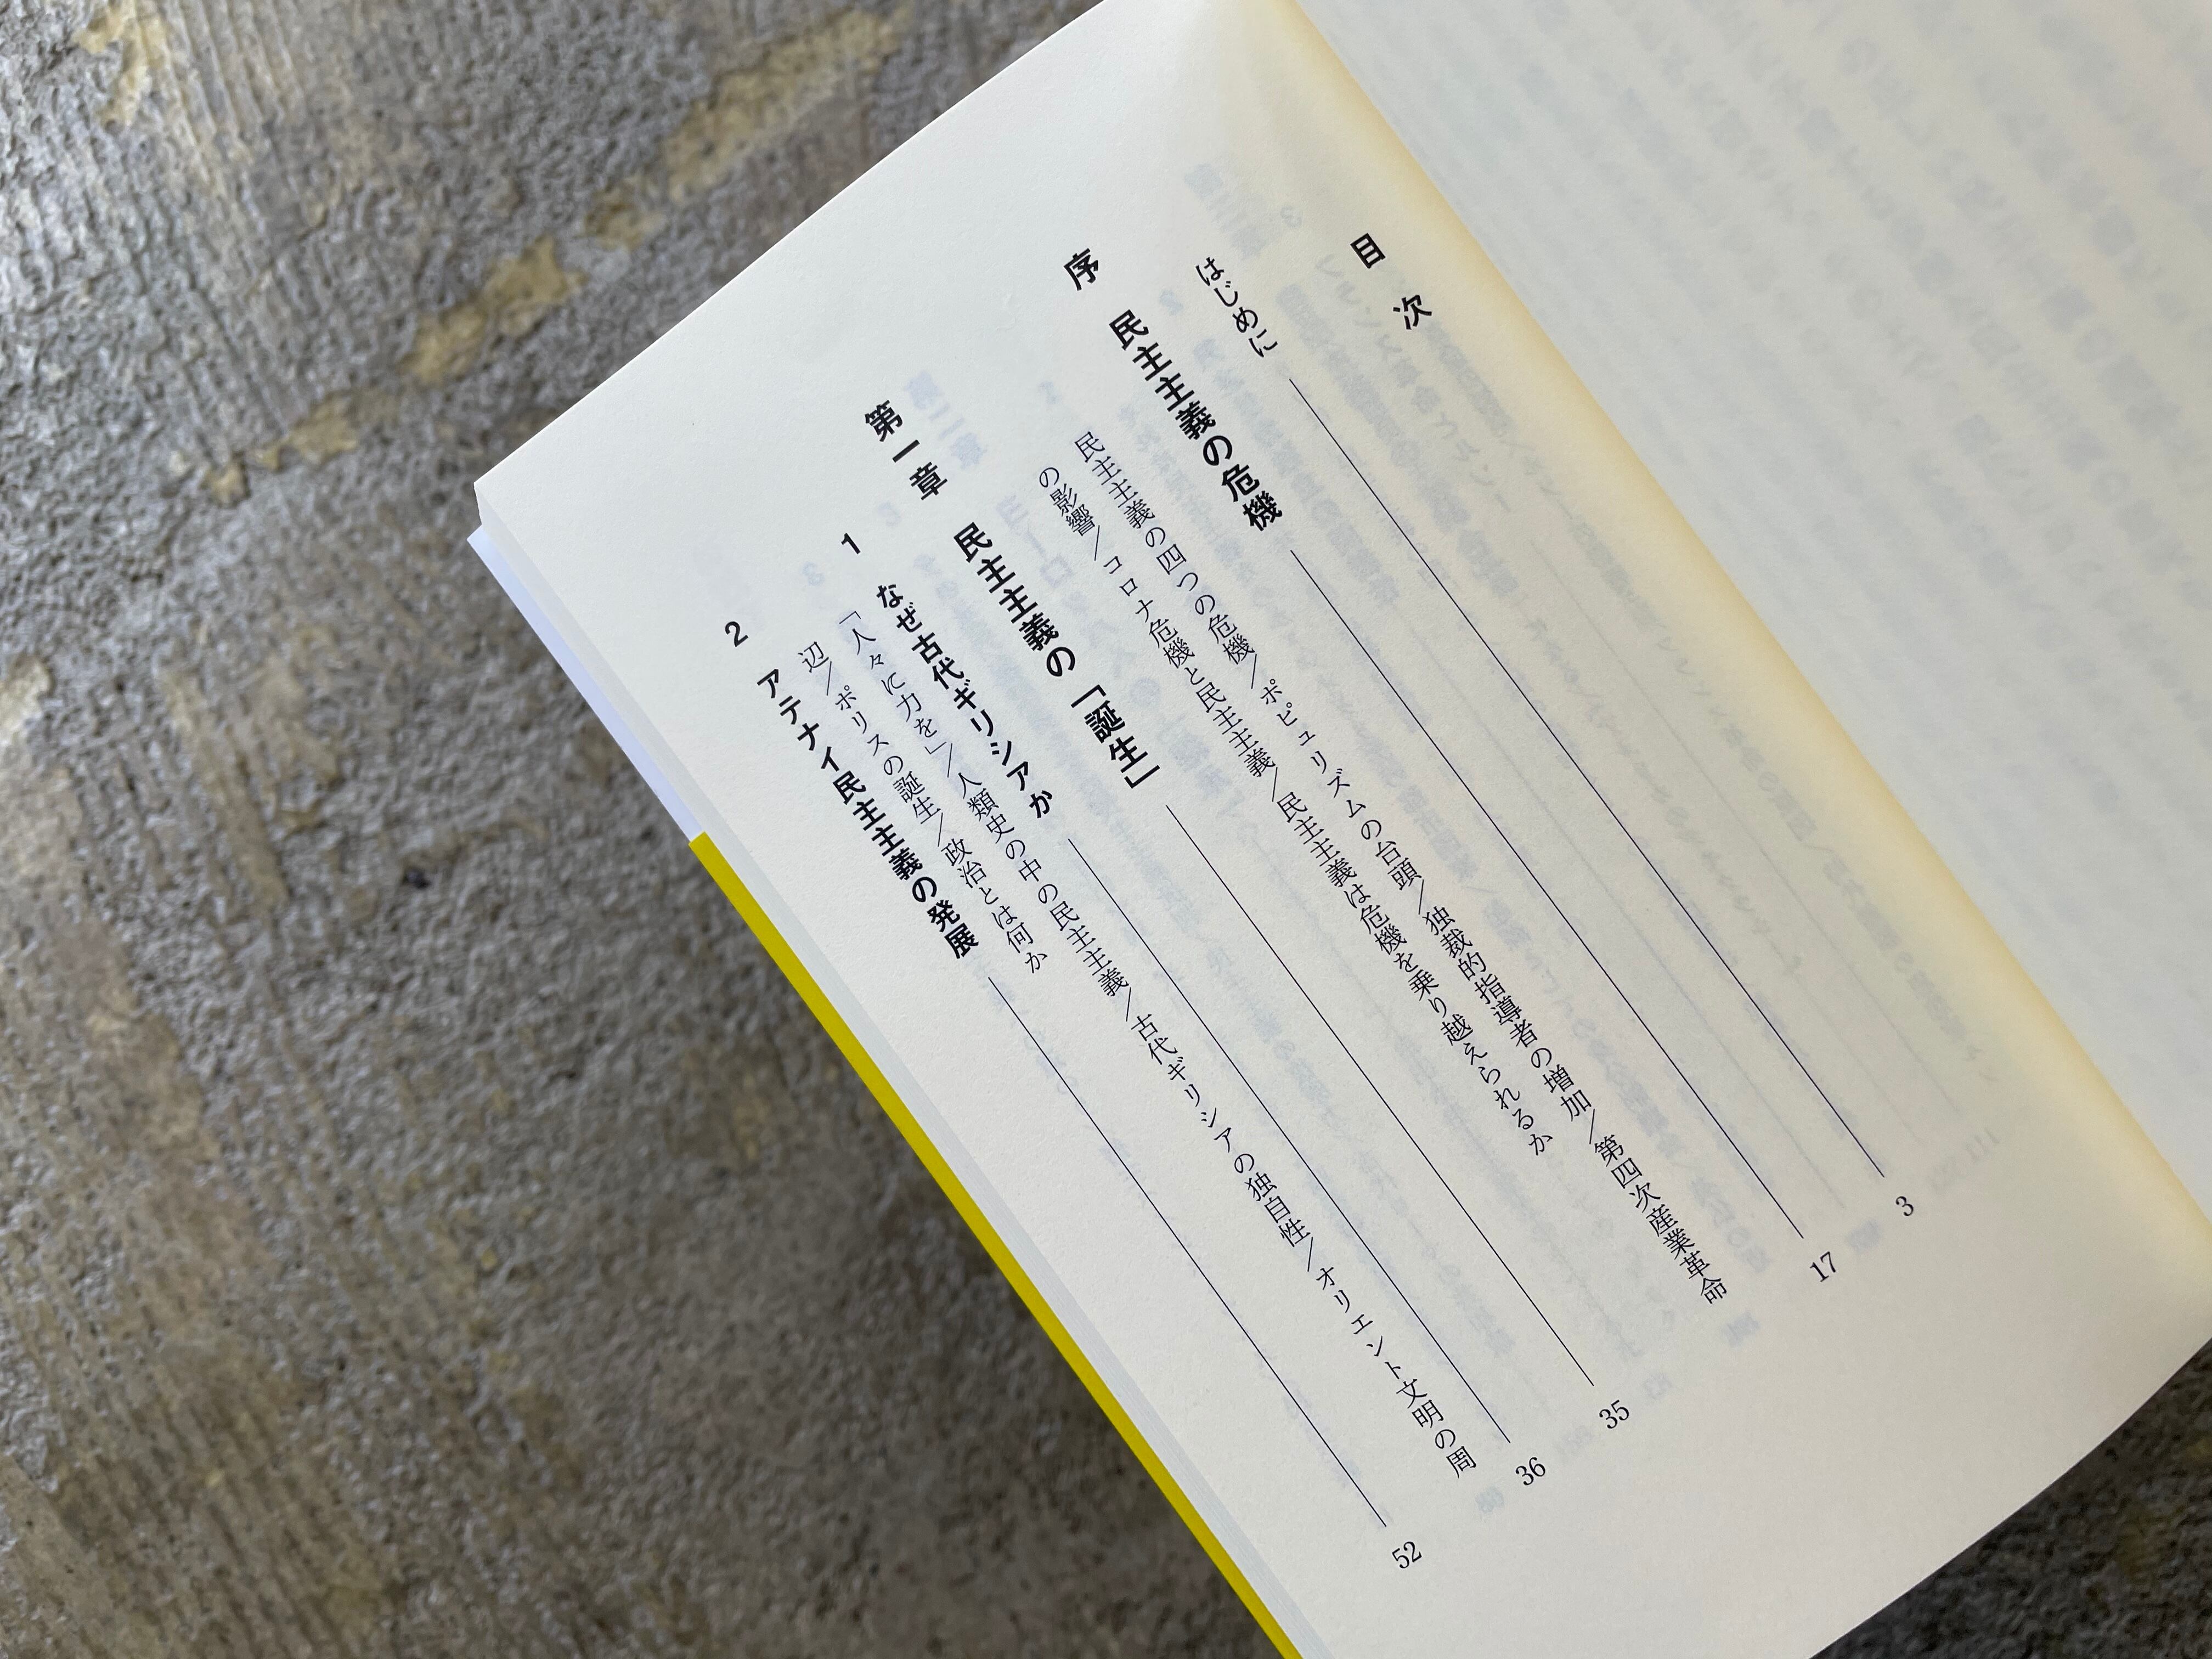 目次
はじめに 3
序 民主主義の危機 17
民主主義の四つの危機／ポピュリズムの台頭／独裁的指導者の増加／第四次産業革命
の影響／コロナ危機と民主主義／民主主義は危機を乗り越えられるか
第一章 民主主義の「誕生」 35
1 なぜ古代ギリシアか 36
「人々に力を」／人類史の中の民主主義／古代ギリシアの独自性／オリエント文明の周
辺／ポリスの誕生／政治とは何か
2 アテナイ民主主義の発展 52